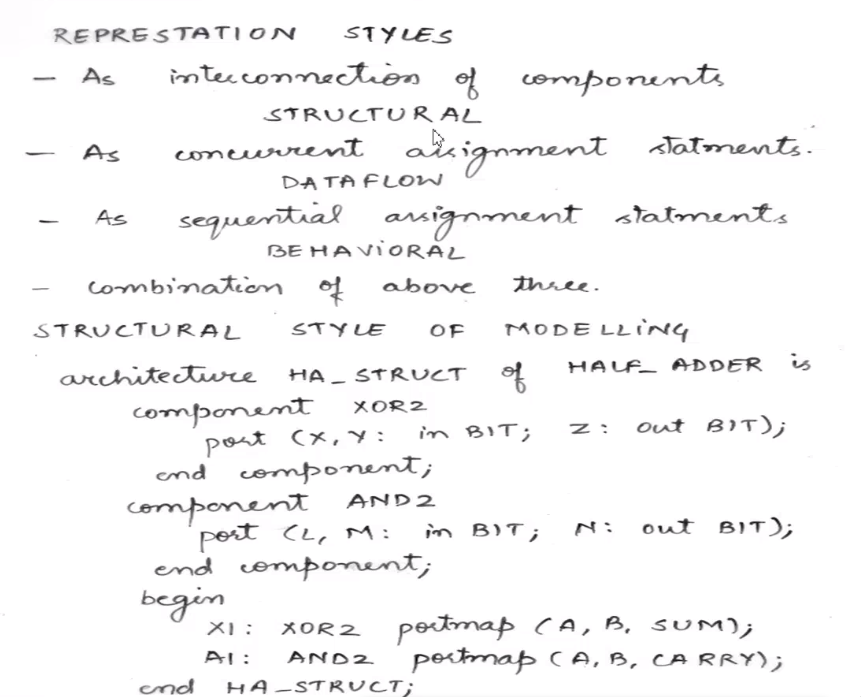 REPRESTATION STYLES
— As interconnection of components
STRUCTURAL
— As concurrent assignment statments.
DATAFLOW
— As sequential assignment statments
BEHAVIORAL
— combination of above three.
STRUCTURAL STYLE OF MODELLING
architecture HA_STRUCT of HALF_ADDER is
component XOR2
port (X, Y: in BIT; Z: out BIT);
end component;
component AND2
port (L, M: in BIT; N: out BIT);
end component;
begin
X1: XOR2 portmap (A, B, SUM);
A1: AND2 portmap (A, B, CARRY);
end HA_STRUCT;